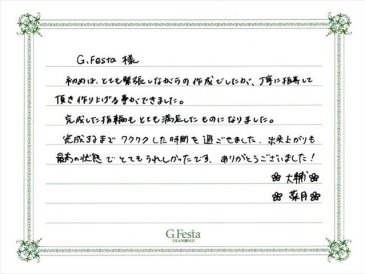 G.Festa 様
初めは、とても緊張しながらの作成でしたが、丁寧に指導して
頂き作り上げる事ができました。
完成した指輪もとても満足したものになりました。
完成するまでワクワクした時間を過ごせました。出来上がりも
最高の状態でとてもうれしかったです。ありがとうございました！
大輔
菜月
G.Festa
DIAMOND